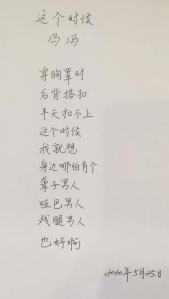 这个时候
冯冯
穿胸罩时
后背搭扣
半天扣不上
这个时候
我就想
身边哪怕有个
聋子男人
哑巴男人
残腿男人
也好啊
2020年5月25日